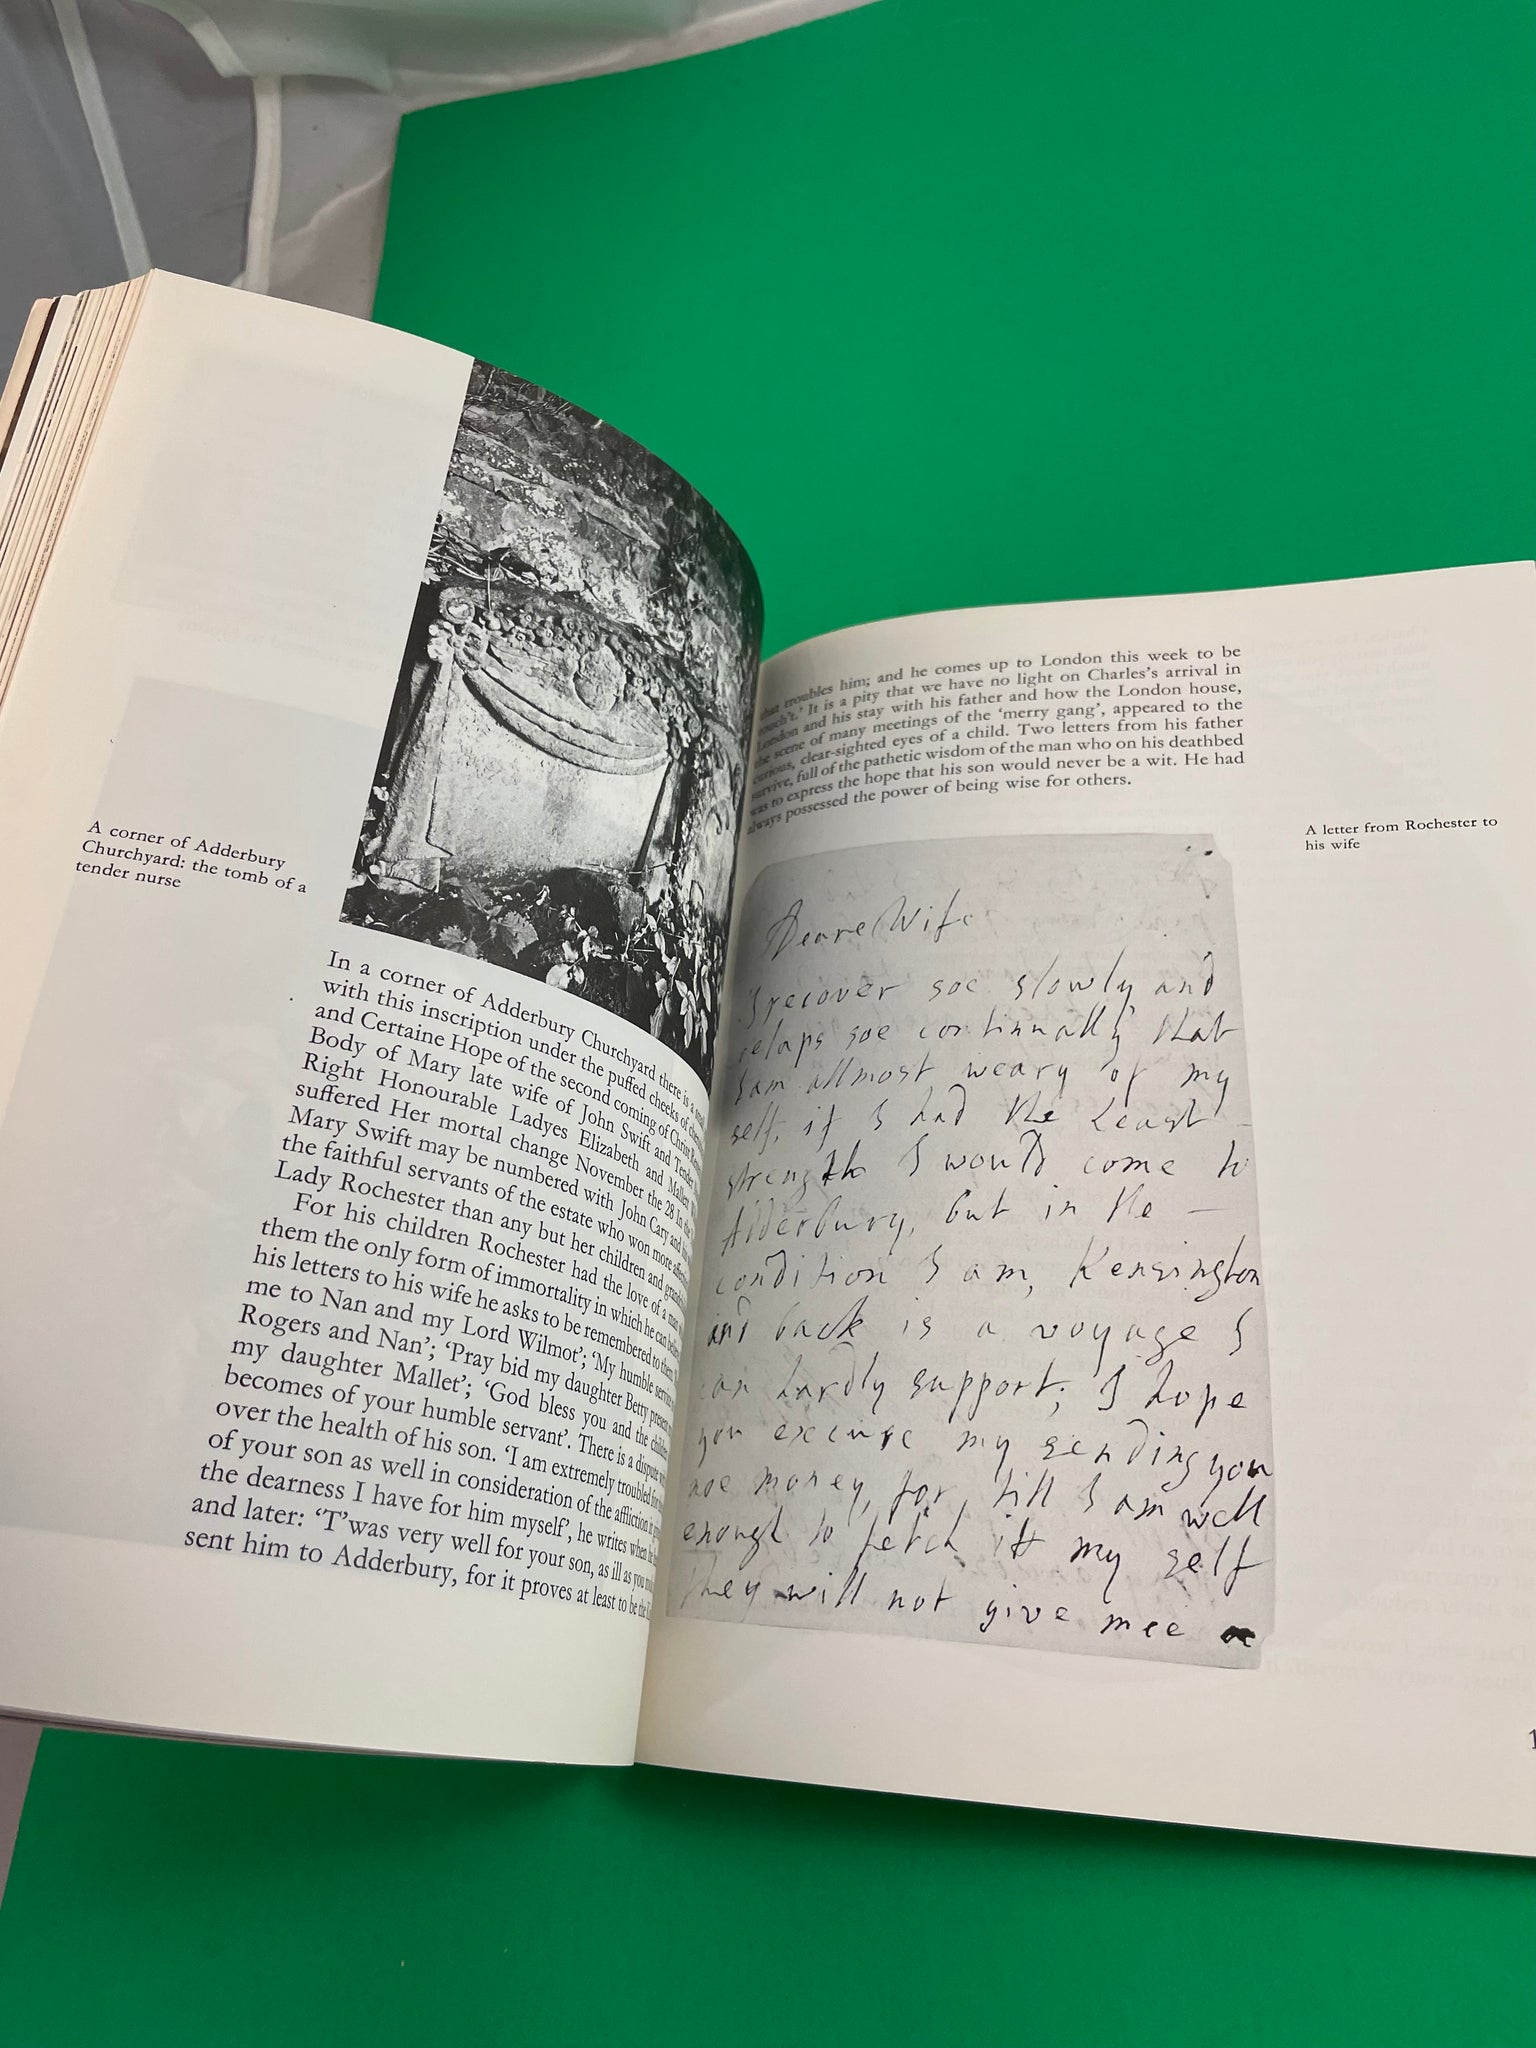 A corner of Adderbury
Churchyard: the tomb of a
tender nurse
In a corner of Adderbury Churchyard there is a
with this inscription under the puffed cheeks of
and Certaine Hope of the second coming of Christ
Body of Mary late wife of John Swift and Tender
Right Honourable Ladyes Elizabeth and Mallett
suffered Her mortal change November the 28 In the
Mary Swift may be numbered with John Cary and his
the faithful servants of the estate who won more
Lady Rochester than any but her children and
For his children Rochester had the love of a man
them the only form of immortality in which he can
his letters to his wife he asks to be remembered to them
me to Nan and my Lord Wilmot'; 'My humble service
Rogers and Nan'; 'Pray bid my daughter Betty present
my daughter Mallet'; 'God bless you and the
becomes of your humble servant'. There is a dispute
over the health of his son. 'I am extremely troubled for
of your son as well in consideration of the affliction
the dearness I have for him myself', he writes when he
and later: 'T'was very well for your son, as ill as you
sent him to Adderbury, for it proves at least to be the
that troubles him; and he comes up to London this week to be
touch't.' It is a pity that we have no light on Charles's arrival in
London and his stay with his father and how the London house,
the scene of many meetings of the 'merry gang', appeared to the
curious, clear-sighted eyes of a child. Two letters from his father
survive, full of the pathetic wisdom of the man who on his deathbed
was to express the hope that his son would never be a wit. He had
always possessed the power of being wise for others.
A letter from Rochester to
his wife
Deare Wife
I recover soe slowly and
relaps soe continually that
I am allmost weary of my
self, if I had the least
strength I would come to
Adderbury, but in the
condition I am, Kensington
and back is a voyage I
can hardly support; I hope
you excuse my sending you
noe money, for till I am well
enough to fetch it my self
they will not give mee
1